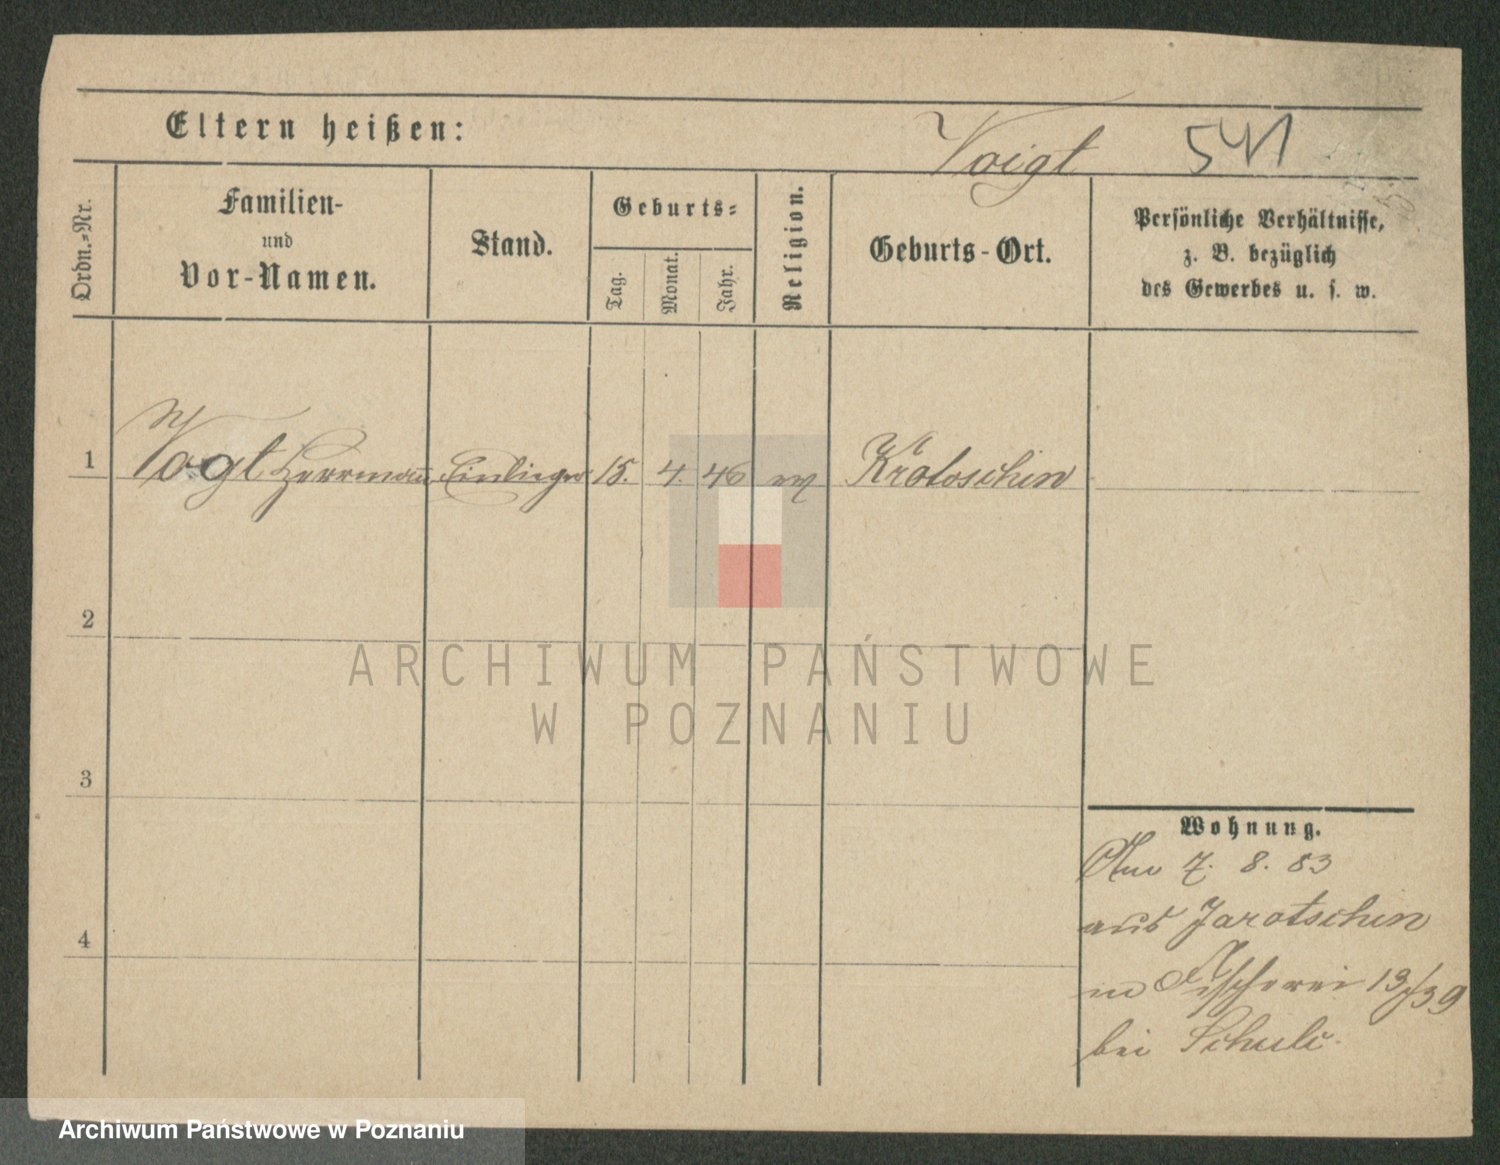 Eltern heißen:
Voigt 541
Ordn.-Nr.
Familien-
und
Vor-Namen.
Stand.
Geburts-
Tag.
Monat.
Jahr.
Religion.
Geburts-Ort.
Persönliche Verhältnisse,
z. B. bezüglich
des Gewerbes u. s. w.
1 Vogt Herrmann Einlieger 15. 4. 46 Krotoschin
2
3
4
Wohnung.
7. 8. 83
aus Jarotschin
in Fischerei 13/39
bei
ARCHIWUM PAŃSTWOWE
W POZNANIU
Archiwum Państwowe w Poznaniu